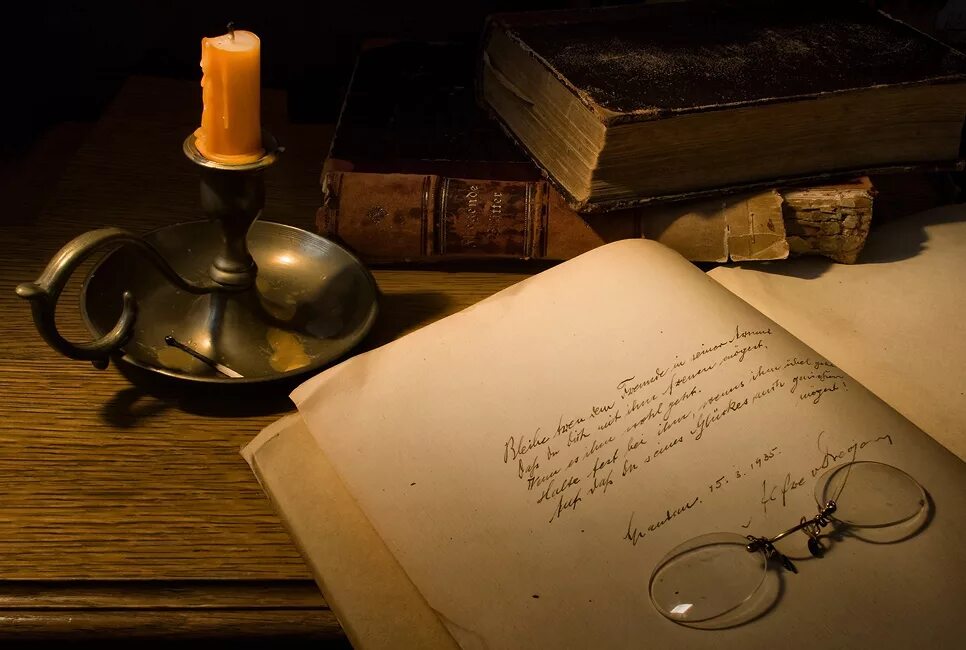 Bleibe treu dem Freunde in seiner Armut
Daß du dich mit ihm freuen mögest,
Wenn es ihm wohl geht.
Halte fest bei ihm, wenns ihm übel geht
Auf daß Du seines Glückes auch genießen
mögest!
15. 3. 1935.